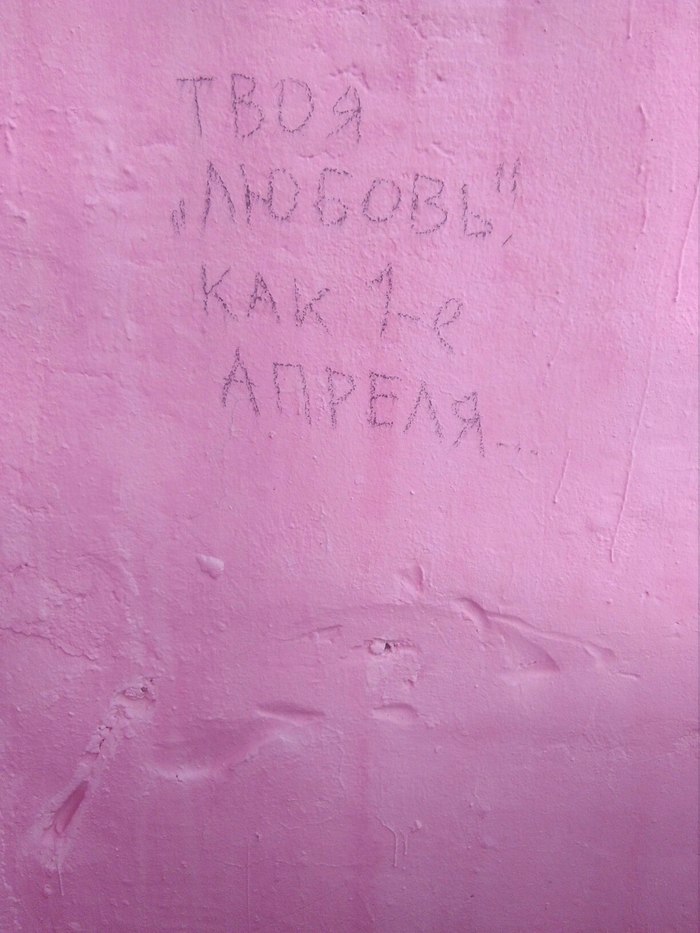 ТВОЯ
„ЛЮБОВЬ",
КАК 1-е
АПРЕЛЯ...